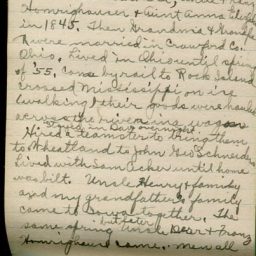 Homrighausen & Aunt Anna
in 1845. Then Grandma & Grandpa
were married in Crawford Co.
Ohio. Lived in Ohio until spring
of '55. Came by rail to Rock Island
crossed Mississippi on ice
(walking & their goods were hauled
across the river in a wagon
Hired a teamster to bring them
to Wheatland to John Geo Schneiders
Lived with Sam Acker until home
was bilt. Uncle Henry & family
and my grandfather's family
came to Iowa together. The
same spring but later Uncle & Franz
Homrighausen came. Men all